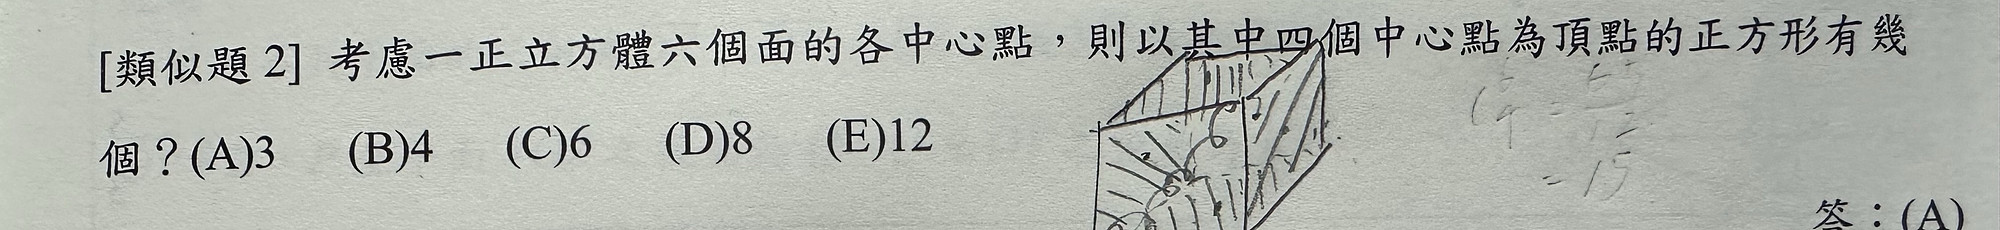 [類似題 2] 考慮一正立方體六個面的各中心點，則以其中四個中心點為頂點的正方形有幾
個？(A)3 (B)4 (C)6 (D)8 (E)12
= 15
答：(A)